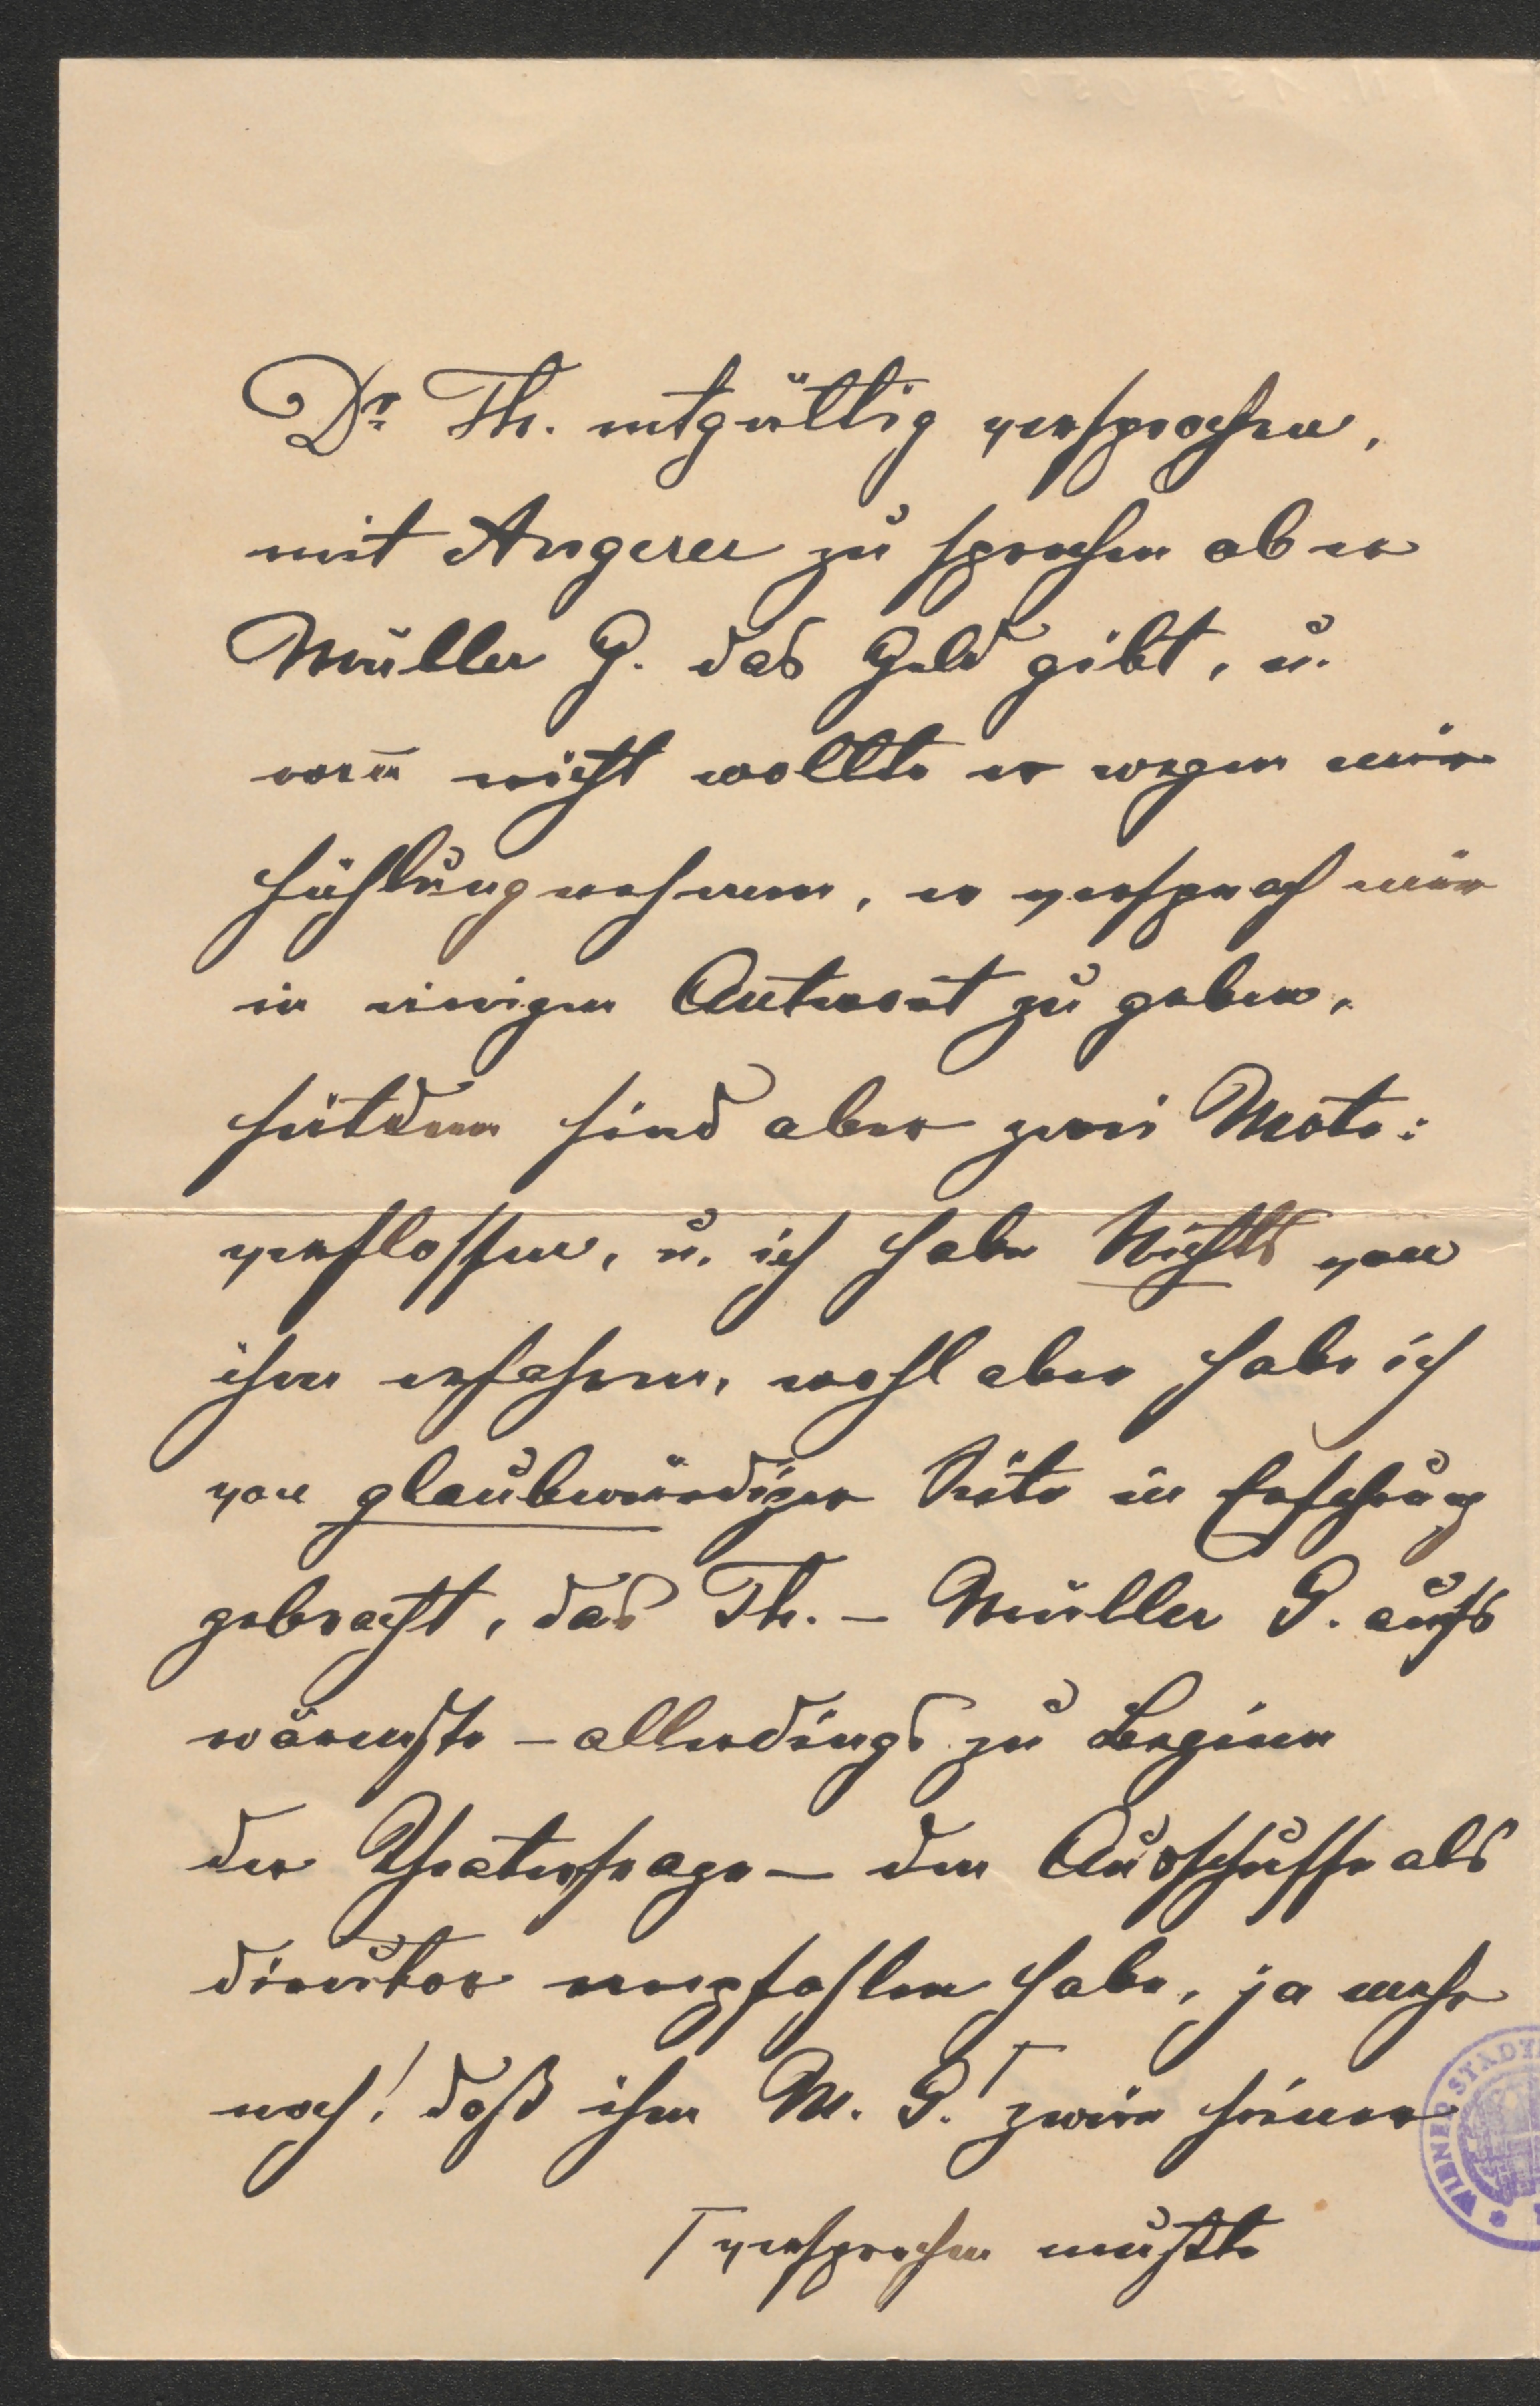 Dr. Th. entgültig versprochen,
mit Angerer zu sprechen ob er
Müller G. das Geld gibt, u.
wen̅ nicht wollte er wegen mir
fühlungnehmen, er versprach mir
in einigen Antwort zu geben,
seitdem sind aber zwei Mote:
verflossen, u. ich habe Nichts von
ihm erfahren, wohl aber habe ich
von glaubwürdiger Seite in Erfahrung
gebracht, das Th. – Müller G. aufs
wärmste – allerdings zu Beginn
der Theaterfrage – dem Ausschusse als
direktor empfohlen habe, ja mehr
noch! daß ihm M. G. zwei seiner
versprechen mußte
WIENER STADT